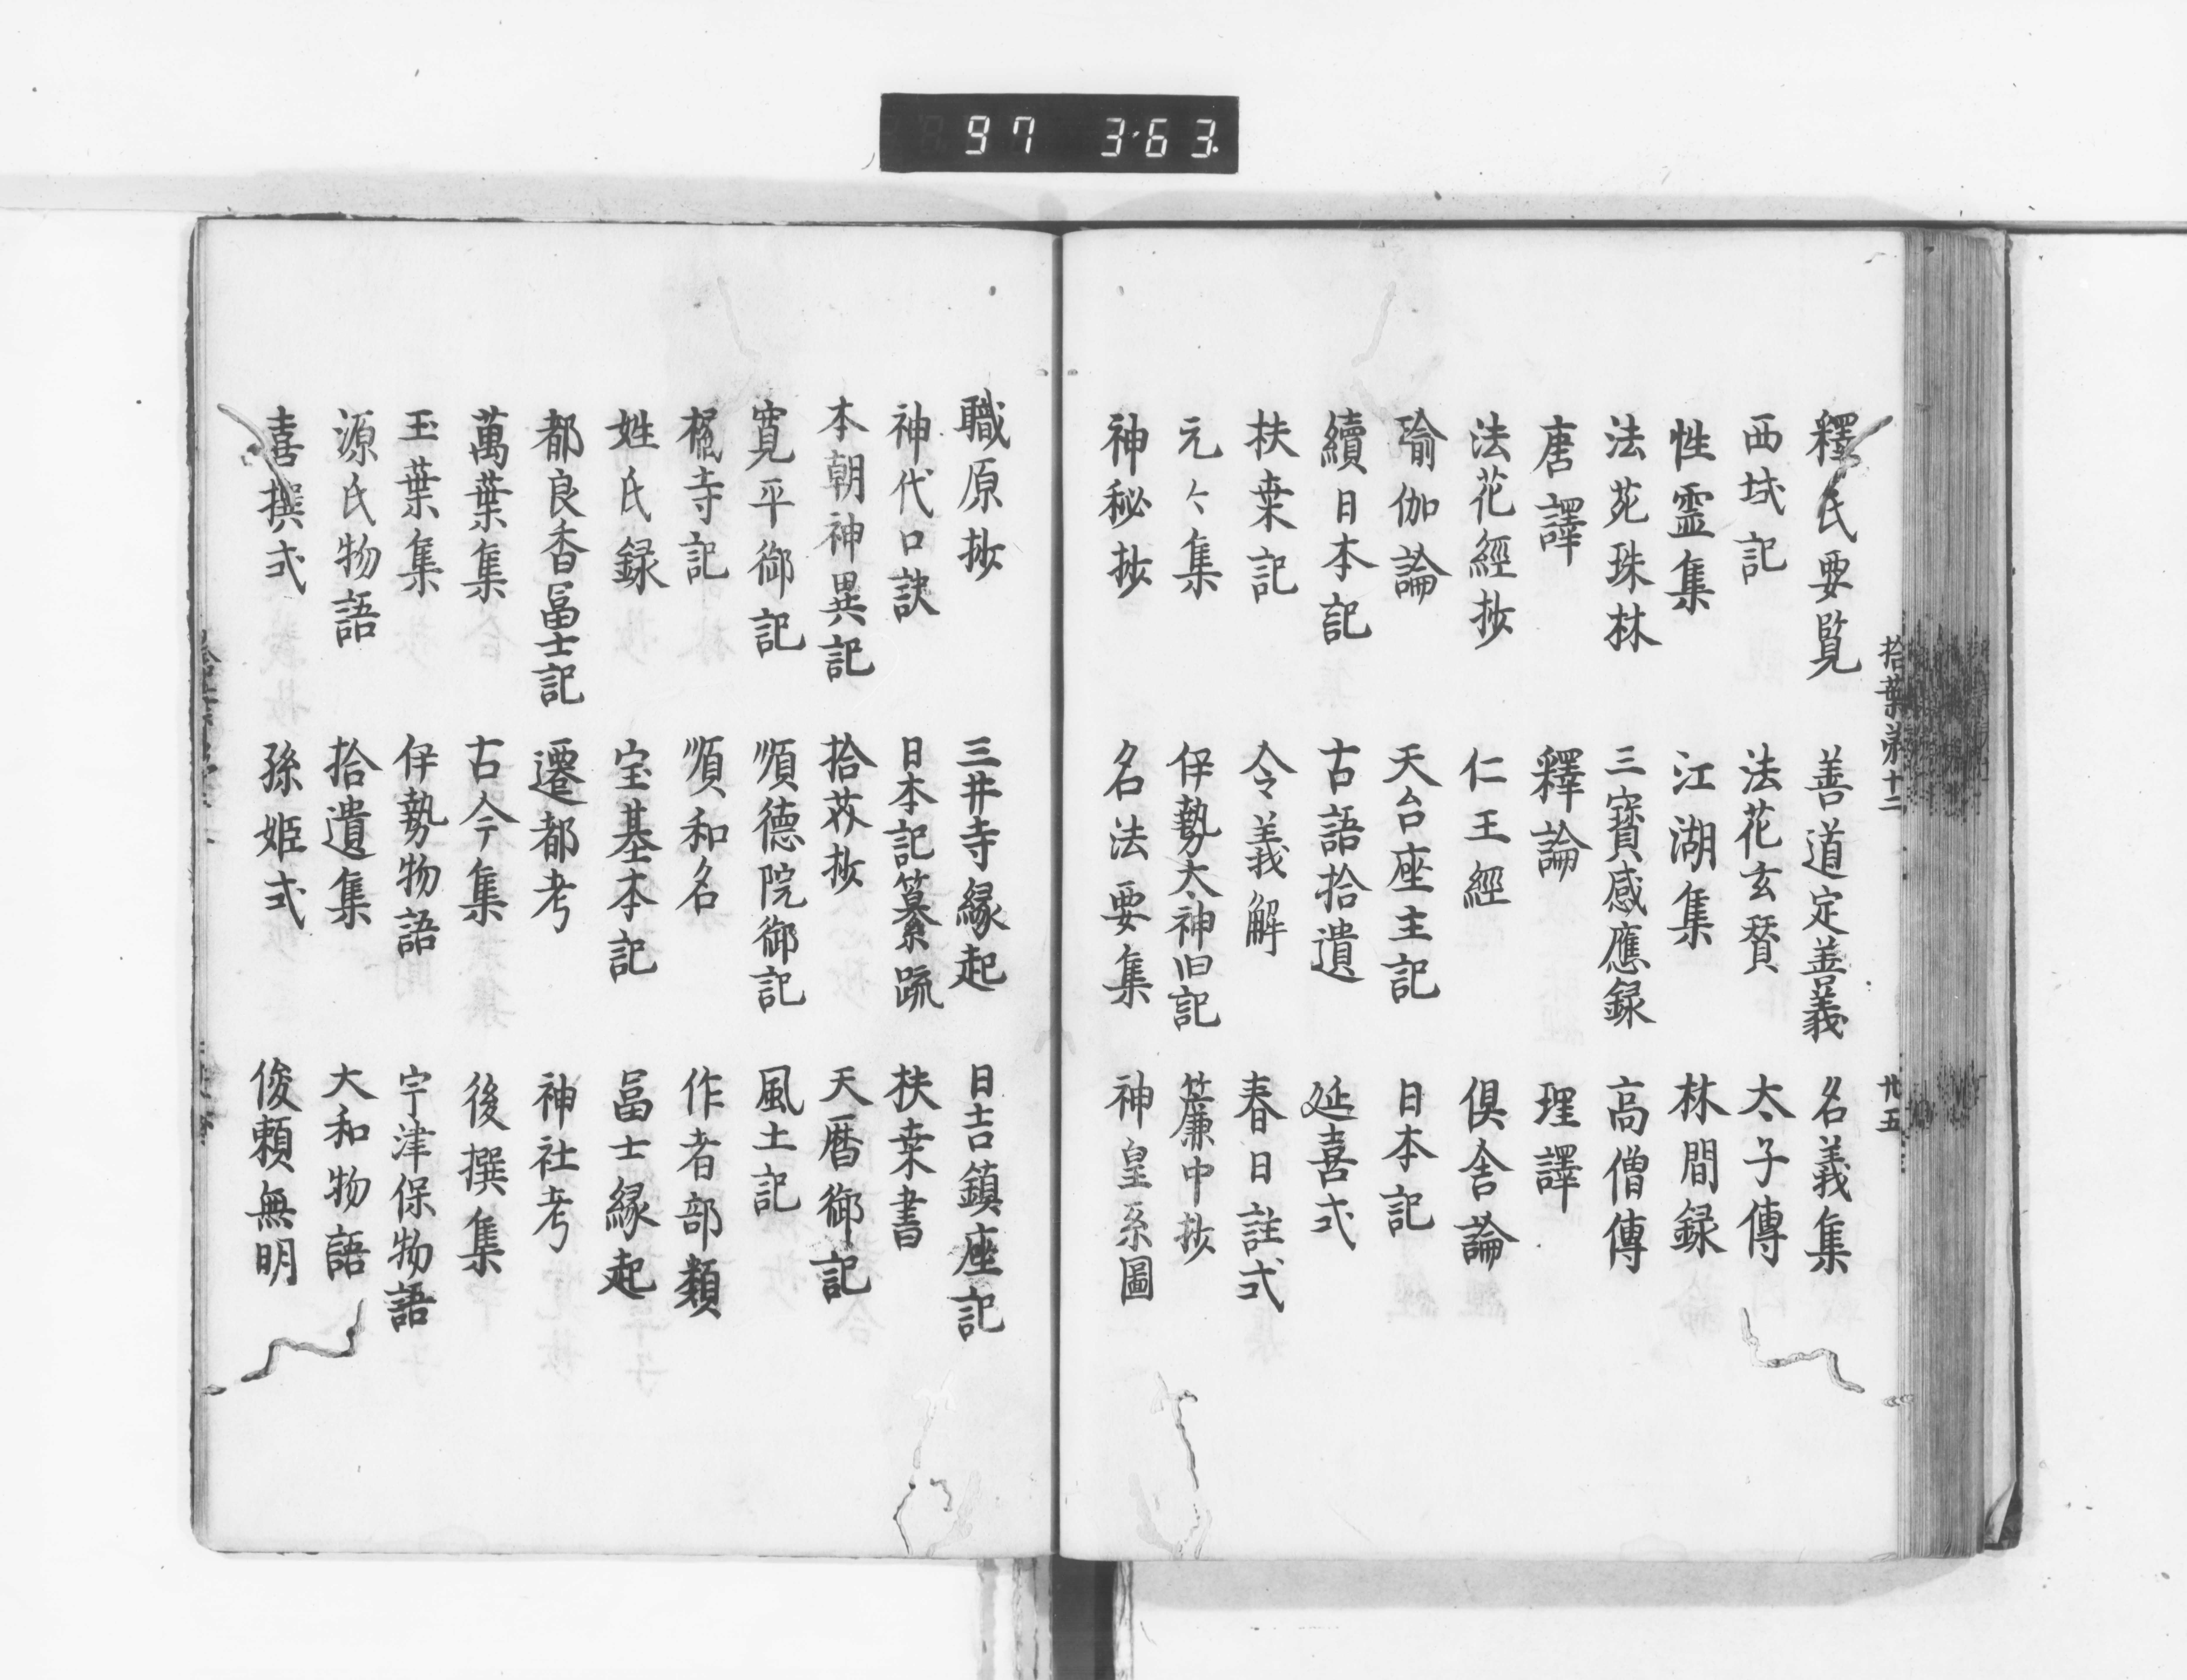 97 3・63.
拾葉第十二 廿五
釋氏要覧 善道定善義 名義集
西域記 法花玄賛 太子傳
性霊集 江湖集 林間録
法苑珠林 三寶感應録 高僧傳
唐譯 釋論 理譯
法花經抄 仁王經 倶舎論
瑜伽論 天台座主記 日本記
續日本記 古語拾遺 延喜式
扶桒記 令義解 春日註式
元々集 伊勢太神旧記 簾中抄
神秘抄 名法要集 神皇系圖
職原抄 三井寺縁起 日吉鎮座記
神代口訣 日本記纂疏 扶桒書
本朝神異記 拾芥抄 天暦御記
寛平御記 順德院御記 風土記
寺記 順和名 作者部類
姓氏録 宝基本記 冨士縁起
都良香冨士記 遷都考 神社考
萬葉集 古今集 後撰集
玉葉集 伊勢物語 宇津保物語
源氏物語 拾遺集 大和物語
喜撰式 孫姫式 俊頼無明